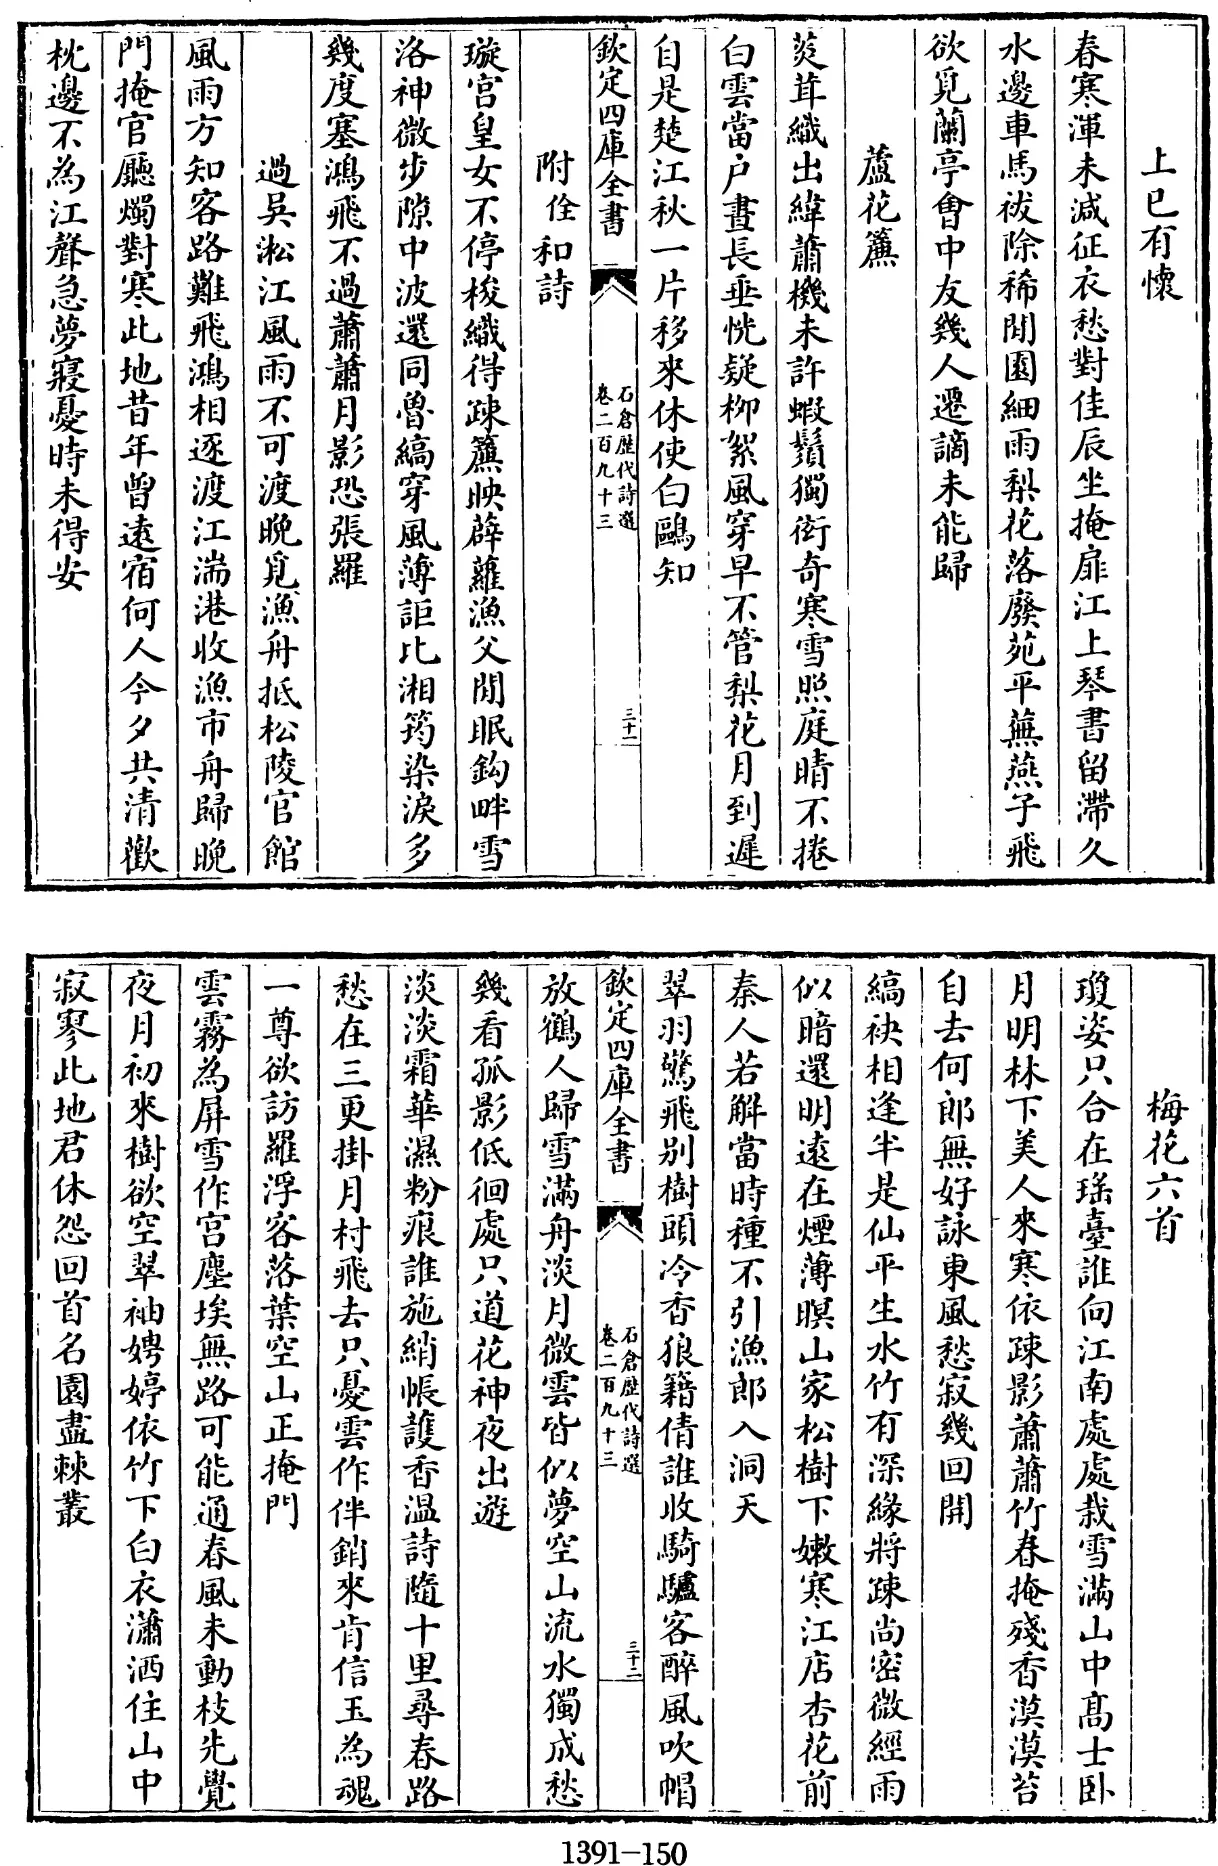 上巳有懷
春寒渾未減征衣愁對佳辰坐掩扉江上琴書留滯久
水邊車馬祓除稀閒園細雨梨花落廢苑平蕪燕子飛
欲覓蘭亭會中友幾人遷謫未能歸
蘆花簾
茭茸織出緯蕭機未許蝦鬚獨衒奇寒雪照庭晴不捲
白雲當户晝長垂恍疑柳絮風穿早不管梨花月到遲
自是楚江秋一片移來休使白鷗知
欽定四庫全書
石倉歷代詩選
卷二百九十三
三十一
附佺和詩
璇宫皇女不停梭織得疎簾映薜蘿漁父閒眠鈎畔雪
洛神微步隙中波還同魯縞穿風薄詎比湘筠染淚多
幾度塞鴻飛不過蕭蕭月影恐張羅
過吳淞江風雨不可渡晚覓漁舟抵松陵官館
風雨方知客路難飛鴻相逐渡江湍港收漁市舟歸晚
門掩官廳燭對寒此地昔年曾遠宿何人今夕共清歡
枕邊不為江聲急夢寢憂時未得安
梅花六首
瓊姿只合在瑶臺誰向江南處處栽雪滿山中髙士卧
月明林下美人來寒依疎影蕭蕭竹春掩殘香漠漠苔
自去何郎無好詠東風愁寂幾回開
縞袂相逢半是仙平生水竹有深緣將疎尚密微經雨
似暗還明遠在煙薄暝山家松樹下嫩寒江店杏花前
秦人若解當時種不引漁郎入洞天
翠羽驚飛别樹頭冷香狼籍倩誰收騎驢客醉風吹帽
欽定四庫全書
石倉歷代詩選
卷二百九十三
三十二
放鶴人歸雪滿舟淡月微雲皆似夢空山流水獨成愁
幾看孤影低徊處只道花神夜出遊
淡淡霜華濕粉痕誰施綃帳護香温詩隨十里尋春路
愁在三更掛月村飛去只憂雲作伴銷來肯信玉為魂
一尊欲訪羅浮客落葉空山正掩門
雲霧為屏雪作宫塵埃無路可能通春風未動枝先覺
夜月初來樹欲空翠袖娉婷依竹下白衣瀟洒住山中
寂寥此地君休怨回首名園盡棘叢
1391-150